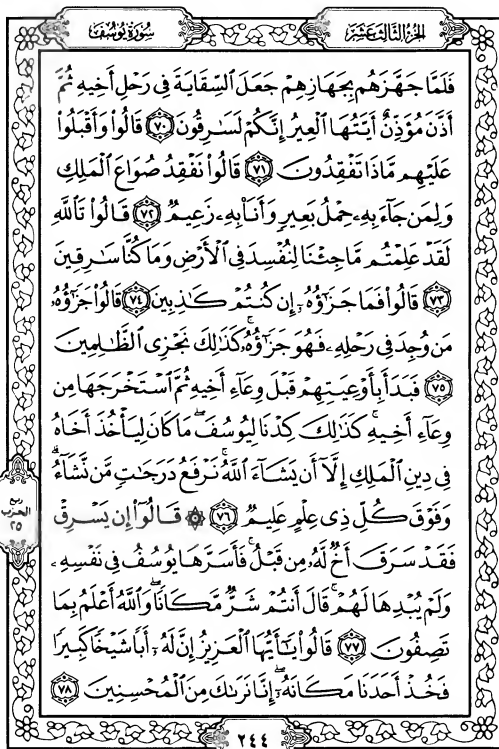 سُورَةُ يُوسُفَ
الجُزءُ الثَّالِثَ عَشَرَ
فَلَمَّا جَهَّزَهُم بِجَهَازِهِمْ جَعَلَ ٱلسِّقَايَةَ فِى رَحْلِ أَخِيهِ ثُمَّ
أَذَّنَ مُؤَذِّنٌ أَيَّتُهَا ٱلْعِيرُ إِنَّكُمْ لَسَٰرِقُونَ ٧٠ قَالُوا۟ وَأَقْبَلُوا۟
عَلَيْهِم مَّاذَا تَفْقِدُونَ ٧١ قَالُوا۟ نَفْقِدُ صُوَاعَ ٱلْمَلِكِ
وَلِمَن جَآءَ بِهِۦ حِمْلُ بَعِيرٍ وَأَنَا۠ بِهِۦ زَعِيمٌ ٧٢ قَالُوا۟ تَٱللَّهِ
لَقَدْ عَلِمْتُم مَّا جِئْنَا لِنُفْسِدَ فِى ٱلْأَرْضِ وَمَا كُنَّا سَٰرِقِينَ
٧٣ قَالُوا۟ فَمَا جَزَٰٓؤُهُۥٓ إِن كُنتُمْ كَٰذِبِينَ ٧٤ قَالُوا۟ جَزَٰٓؤُهُۥ
مَن وُجِدَ فِى رَحْلِهِۦ فَهُوَ جَزَٰٓؤُهُۥ ۚ كَذَٰلِكَ نَجْزِى ٱلظَّٰلِمِينَ
٧٥ فَبَدَأَ بِأَوْعِيَتِهِمْ قَبْلَ وِعَآءِ أَخِيهِ ثُمَّ ٱسْتَخْرَجَهَا مِن
وِعَآءِ أَخِيهِ ۚ كَذَٰلِكَ كِدْنَا لِيُوسُفَ ۖ مَا كَانَ لِيَأْخُذَ أَخَاهُ
فِى دِينِ ٱلْمَلِكِ إِلَّآ أَن يَشَآءَ ٱللَّهُ ۚ نَرْفَعُ دَرَجَٰتٍ مَّن نَّشَآءُ ۗ
وَفَوْقَ كُلِّ ذِى عِلْمٍ عَلِيمٌ ٧٦ ۞ قَالُوٓا۟ إِن يَسْرِقْ
فَقَدْ سَرَقَ أَخٌ لَّهُۥ مِن قَبْلُ ۚ فَأَسَرَّهَا يُوسُفُ فِى نَفْسِهِۦ
وَلَمْ يُبْدِهَا لَهُمْ ۚ قَالَ أَنتُمْ شَرٌّ مَّكَانًا ۖ وَٱللَّهُ أَعْلَمُ بِمَا
تَصِفُونَ ٧٧ قَالُوا۟ يَٰٓأَيُّهَا ٱلْعَزِيزُ إِنَّ لَهُۥٓ أَبًا شَيْخًا كَبِيرًا
فَخُذْ أَحَدَنَا مَكَانَهُۥٓ ۖ إِنَّا نَرَىٰكَ مِنَ ٱلْمُحْسِنِينَ ٧٨
ربع
الحزب
٢٥
٢٤٤